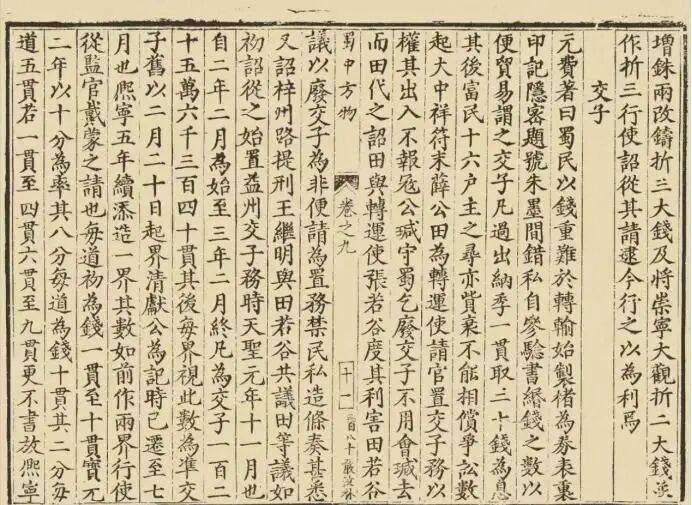 增銖兩改鑄折三大錢及將崇寧大觀折二大錢並
作折三行使詔從其請逮今行之以為利焉
交子
元費著曰蜀民以錢重難於轉輸始製楮為券表裏
印記隱宻題號朱墨間錯私自參驗書緡錢之數以
便貿易謂之交子凡過出納季一貫取三十錢為息
其後富民十六户主之尋亦貲衰不能相償爭訟數
起大中祥符末薛公田為轉運使請官置交子務以
權其出入不報冦公瑊守蜀乞廢交子不用會瑊去
而田代之詔田與轉運使張若谷度其利害田若谷
蜀中方物
卷之九
十一
議以廢交子為非便請為置務禁民私造條奏甚悉
又詔梓州路提刑王繼明與田若谷共議田等議如
初詔從之始置益州交子務時天聖元年十一月也
自二年二月為始至三年二月終凡為交子一百二
十五萬六千三百四十貫其後每界視此數為準交
子舊以二月二十日起界清獻公為記時已遷至七
月也熈寧五年續添造一界其數如前作兩界行使
從監官戴蒙之請也每道初為錢一貫至十貫寳元
二年以十分為率其八分每道為錢十貫其二分每
道五貫若一貫至四貫六貫至九貫更不書放熈寧